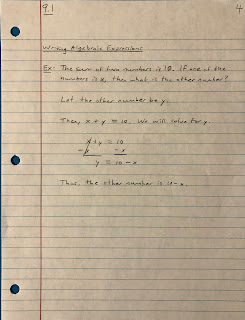 9.1
4
Writing Algebraic Expressions
Ex: The sum of two numbers is 10. If one of the
numbers is x, then what is the other number?
Let the other number be y.
Then, x + y = 10. We will solve for y.
x + y = 10
-x -x
y = 10 - x
Thus, the other number is 10 - x.